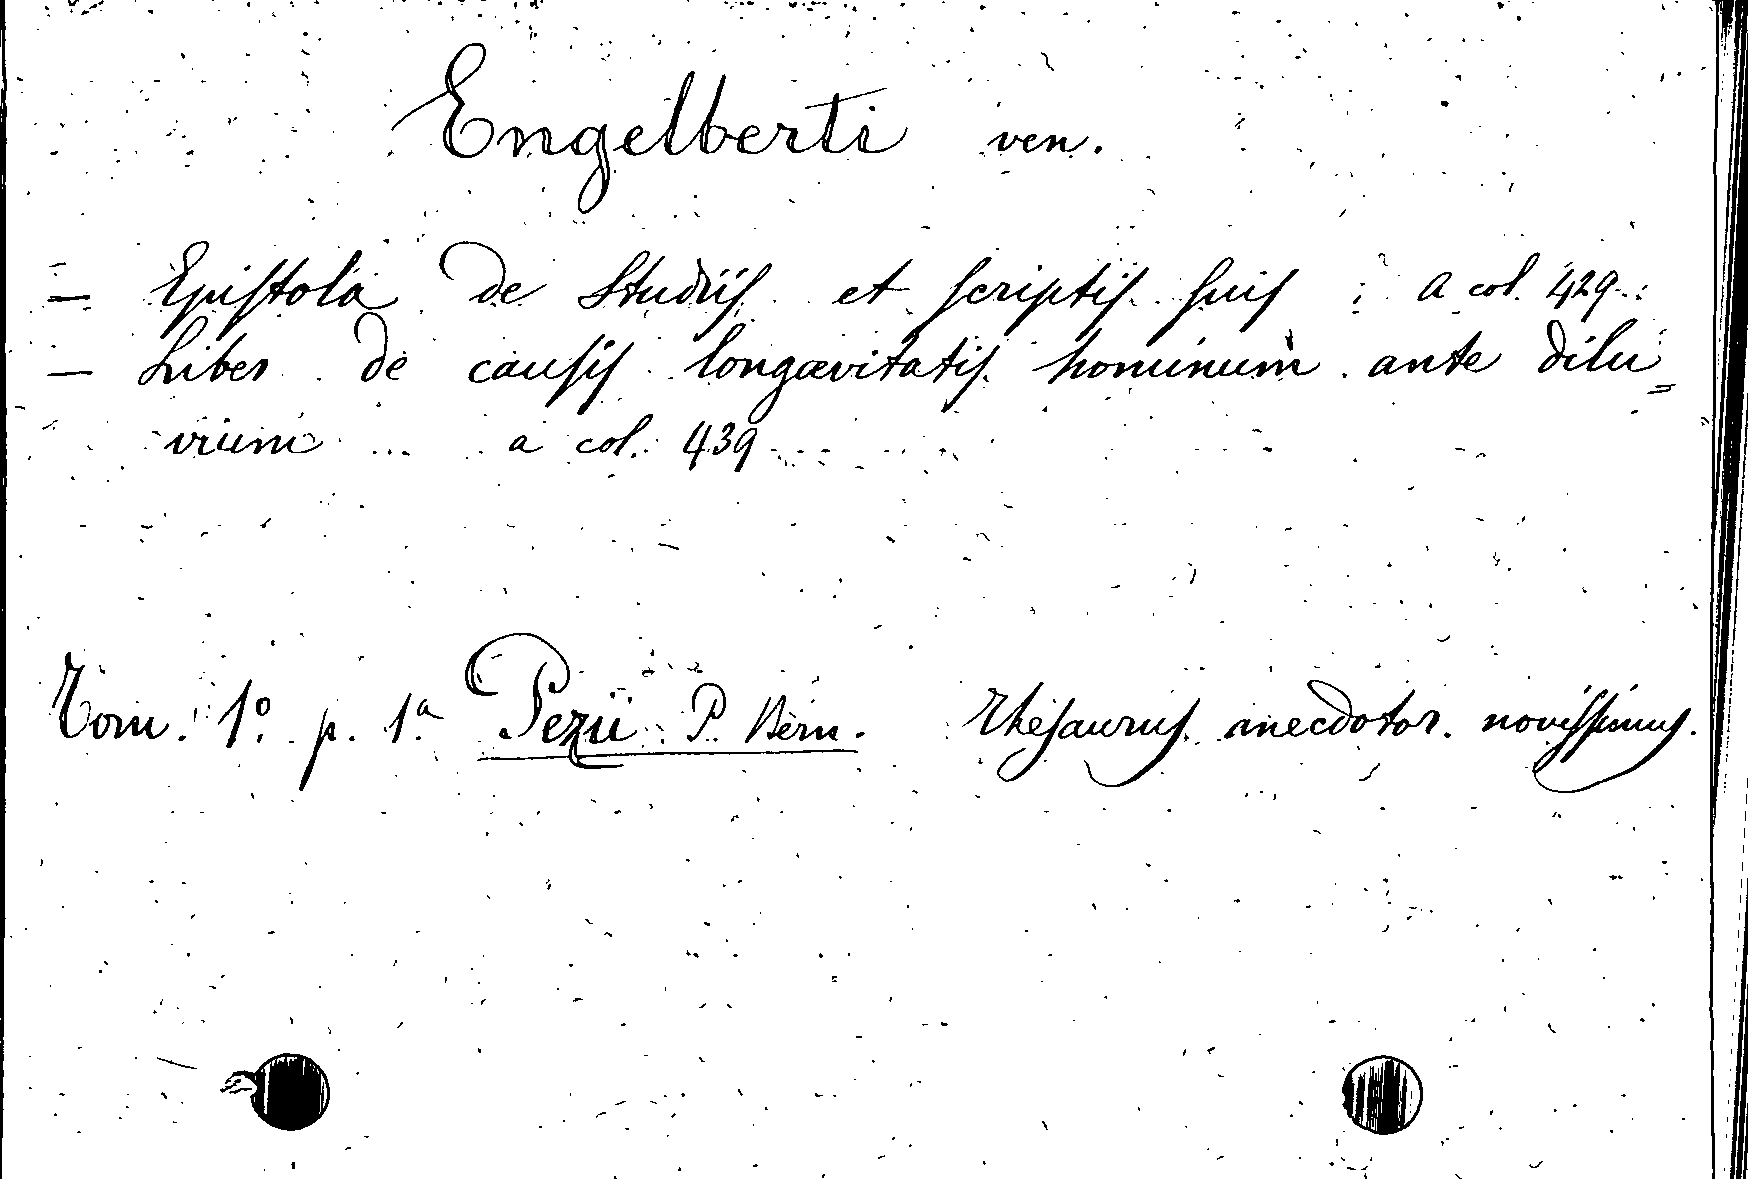 Engelberti ven.
— Epistola de Studiis et scriptis suis : a col. 429.
— Liber de causis longævitatis hominum ante dilu=
vium ... a col. 439
Tom. 1º. p. 1ª Pezii P. Bern. Thesaurus anecdotor. novissimus.